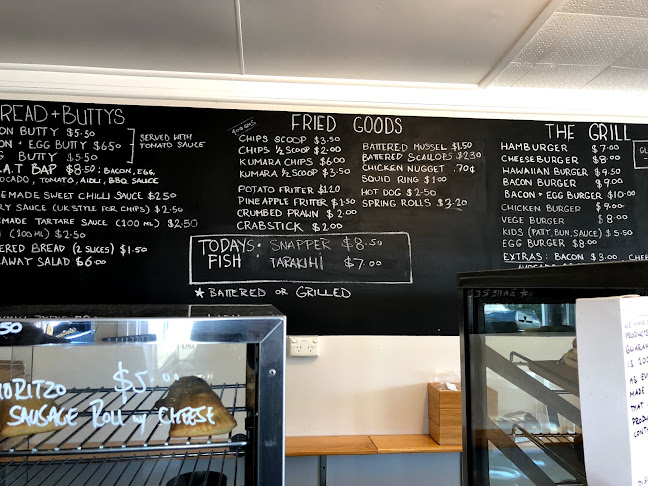 READ + BUTTYS
ON BUTTY $5.50
ON + EGG BUTTY $6.50
G BUTTY $5.50
SERVED WITH
TOMATO SAUCE
.A.T BAP $8.50: BACON, EGG,
OCADO, TOMATO, AIOLI, BBQ SAUCE
EMADE SWEET CHILLI SAUCE $2.50
RY SAUCE (UK STYLE FOR CHIPS) $2.50
EMADE TARTARE SAUCE (100 ML) $2.50
(100 ML) $2.50
ERED BREAD (2 SLICES) $1.50
AWAY SALAD $6.00
FRIED GOODS
CHIPS SCOOP $3.50
CHIPS 1/2 SCOOP $2.00
KUMARA CHIPS $6.00
KUMARA 1/2 SCOOP $3.50
POTATO FRITER $1.20
PINEAPPLE FRITER $1.50
CRUMBED PRAWN $2.00
CRABSTICK $2.00
BATTERED MUSSEL $1.50
BATTERED SCALLOPS $2.30
CHICKEN NUGGET .70¢
SQUID RING $1.00
HOT DOG $2.50
SPRING ROLLS $3.20
TODAYS: SNAPPER $8.50
FISH TARAKIHI $7.00
★ BATTERED OR GRILLED
THE GRILL
HAMBURGER $7.00
CHEESEBURGER $8.00
HAWAIIAN BURGER $9.50
BACON BURGER $9.00
BACON + EGG BURGER $10.00
CHICKEN BURGER $9.00
VEGE BURGER $8.00
KIDS (PATTY, BUN, SAUCE) $5.50
EGG BURGER $8.00
EXTRAS: BACON $3.00 CHEE
GL
.50
HORITZO $5.00
SAUSAGE ROLL w/ CHEESE
WE HAVE
PRODUCT
GUARAN
IS 100
AS EV
MADE
THAT
PRODU
CONTA